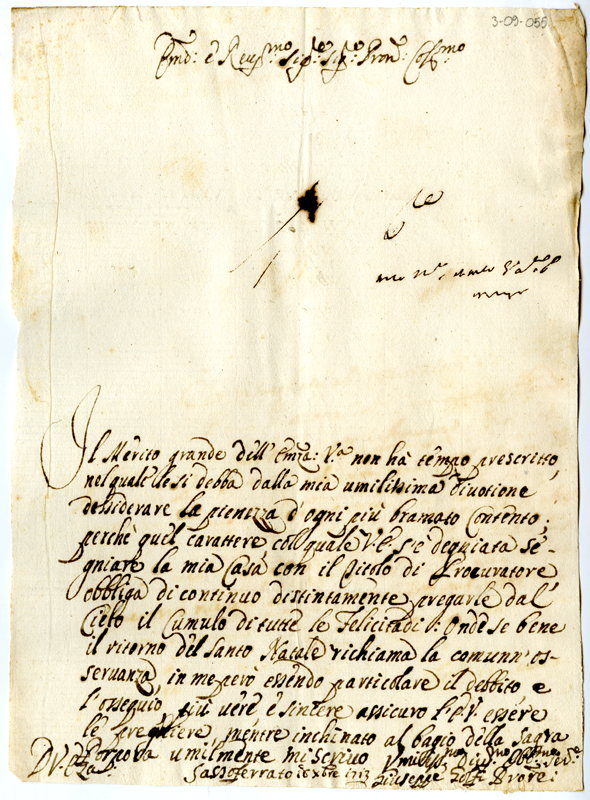 3-09-055
Emo: e Reu.mo Sig.e Sig.e Pron.e Col.mo
Il Merito grande dell' Emza: V.a non hà tempo prescritto,
nel quale le si debba dalla mia umilissima divotione
dessiderare la pienezza d'ogni più bramato Contento;
perchè quel carattere col quale V.E. s'è degniata se-
gniare la mia Casa con il Titolo di Procuratore
obbliga di continuo distintamente pregarle dal
Cielo il Cumulo di tutte le Felicitadi: Onde se bene
il ritorno del Santo Natale richiama la comunn' os-
servanza, in me però essendo particolare il debbito e
l'ossequio, più vere e sincere assicuro l'E.V. essere
le preghiere, mentre inchinato al bagio della Sagra
Porpora umilmente mi scrivo
D V. Emza
Sassoferrato 16 Xbre 1713
Umiliss.mo Diu.mo Obl.mo Ser.e
Giuseppe